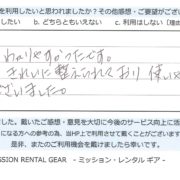 を利用したいと思われましたか？その他感想・ご要望がござい
b. どちらともいえない c. 利用はしない（理由
わかりやすかったです。
きれいに整えられており 使いや
ございました。
ました。戴いたご感想・意見を大切に今後のサービス向上に活
になる方への参考の為、当HP上で利用させて戴くことがございます
是非、またのご利用機会を戴けましたら幸いです。
SSION RENTAL GEAR - ミッション・レンタル ギア -